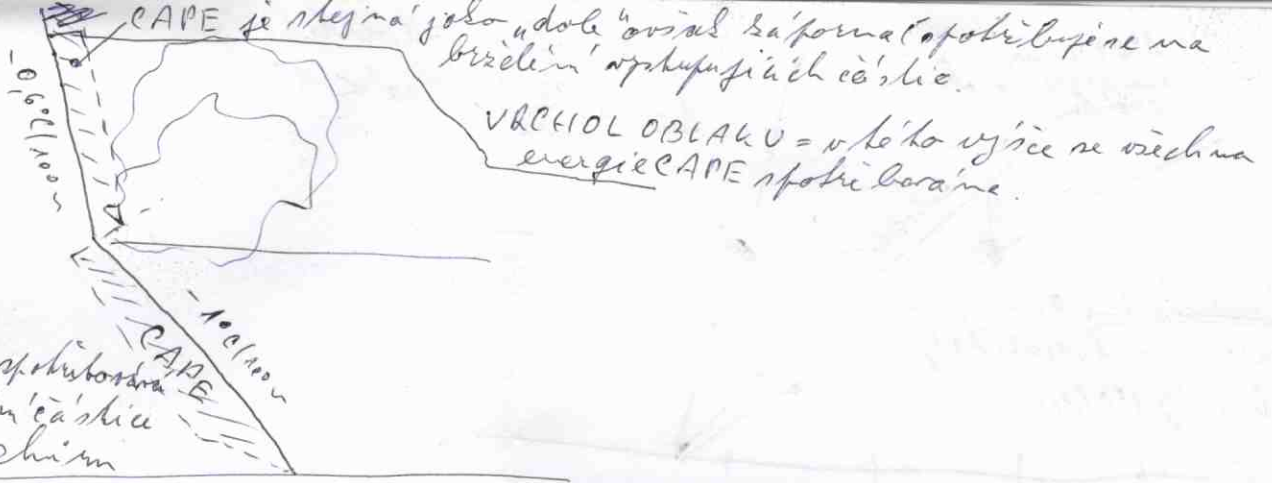 CAPE je stejná jako „dole“ ovšak záporná (spotřebuje se na
brždění vystupujících částic.
-0,6°C/100m
VRCHOL OBLAKU = v této výšce se všechna
energie CAPE spotřebována.
-1°C/100m
CAPE
spotřebována
částice